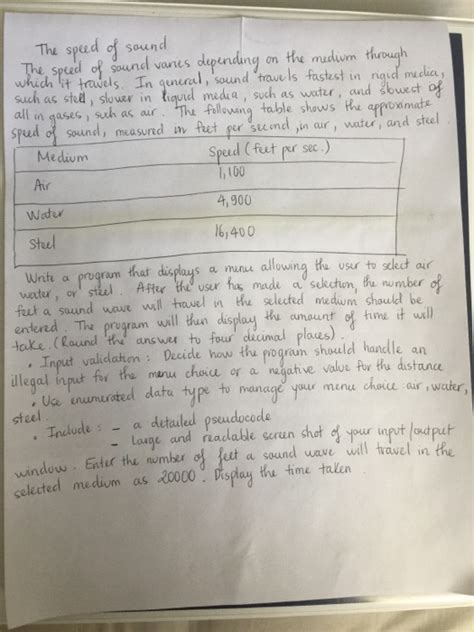 The speed of sound
The speed of sound varies depending on the medium through
which it travels. In general, sound travels fastest in rigid media,
such as steel, slower in liquid media, such as water, and slowest of
all in gases, such as air. The following table shows the approximate
speed of sound, measured in feet per second, in air, water, and steel.
Medium Speed (feet per sec.)
Air 1,100
Water 4,900
Steel 16,400
Write a program that displays a menu allowing the user to select air
water, or steel. After the user has made a selection, the number of
feet a sound wave will travel in the selected medium should be
entered. The program will then display the amount of time it will
take. (Round the answer to four decimal places).
• Input validation: Decide how the program should handle an
illegal input for the menu choice or a negative value for the distance
• Use enumerated data type to manage your menu choice: air, water,
steel.
• Include: – a detailed pseudocode
– large and readable screen shot of your input/output
window. Enter the number of feet a sound wave will travel in the
selected medium as 20000. Display the time taken.